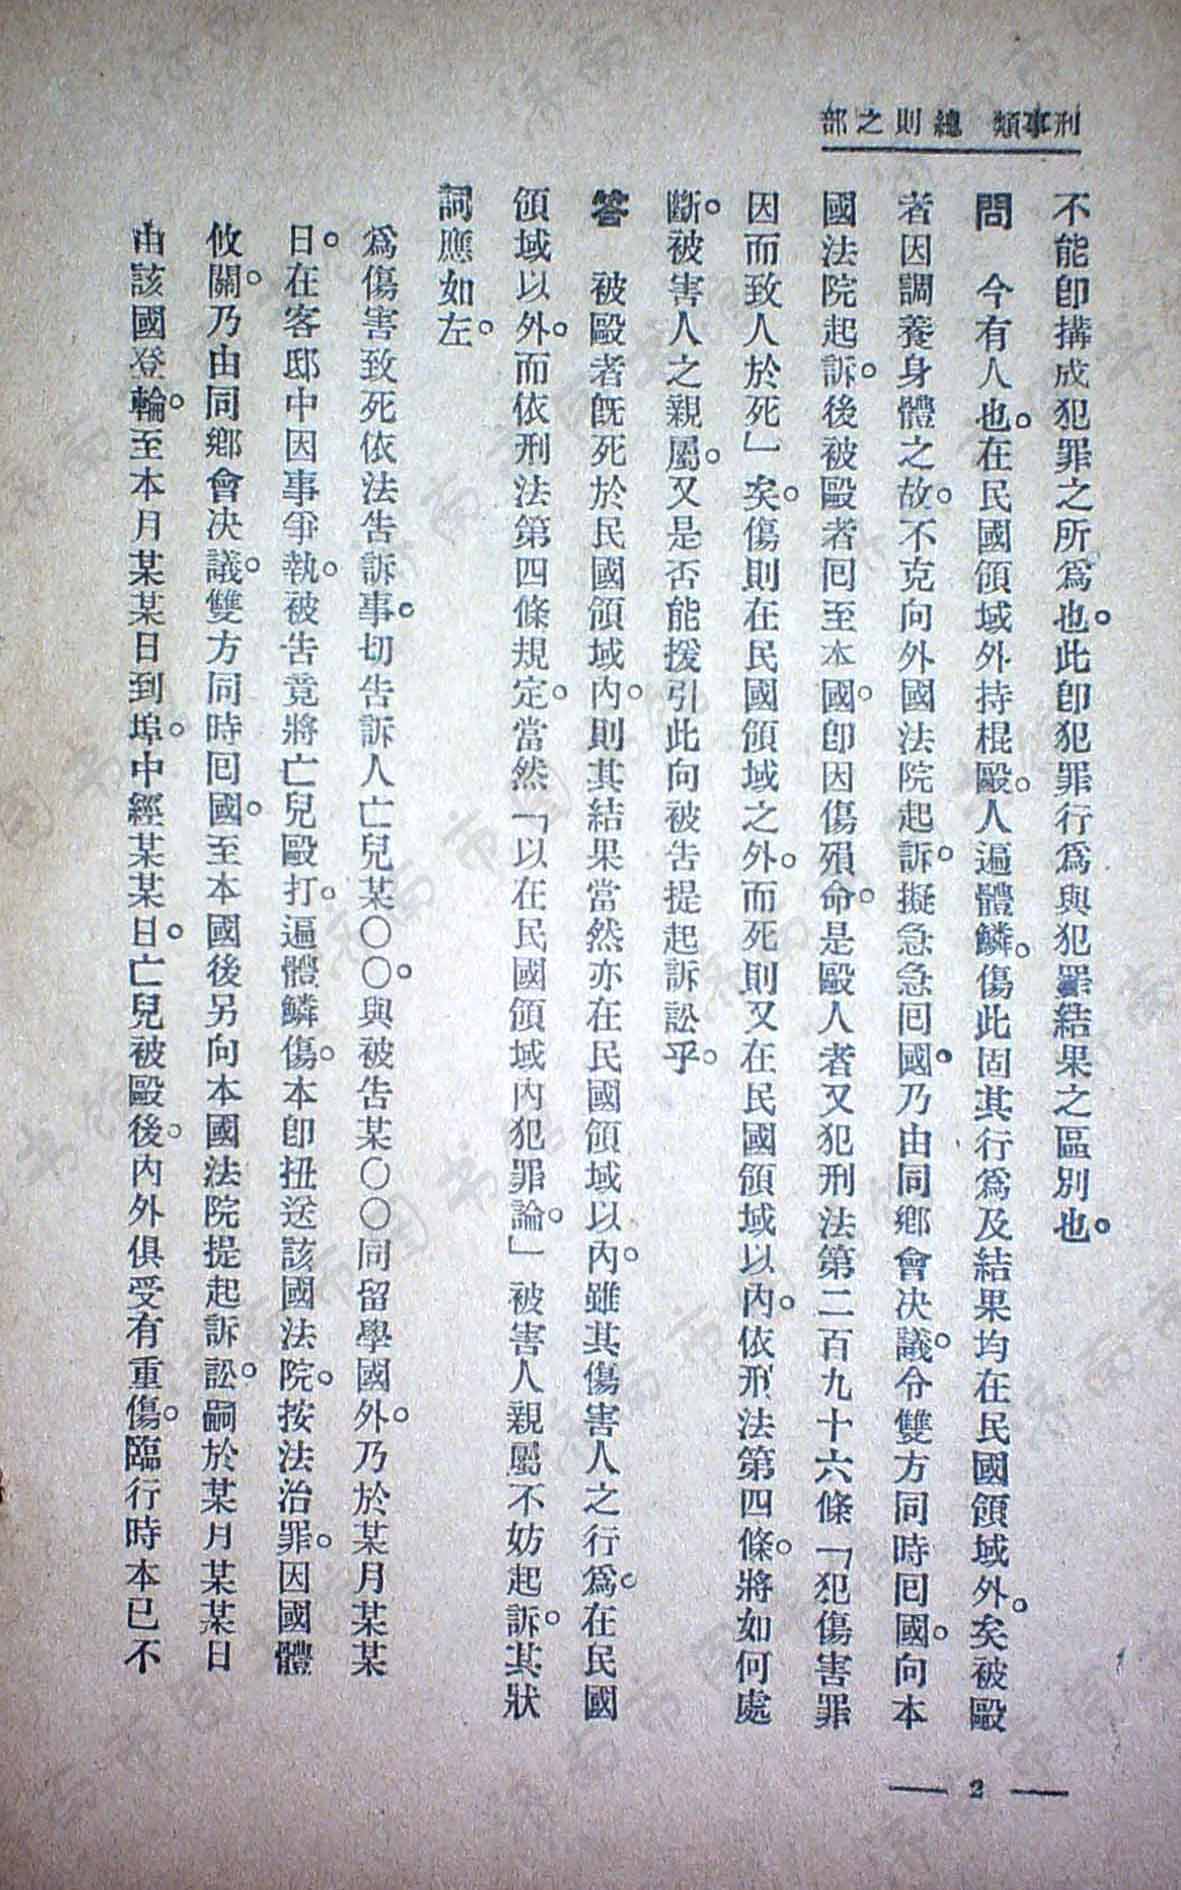 刑事類　總則之部
不能卽搆成犯罪之所爲也。此卽犯罪行爲與犯罪結果之區別也。
問　今有人也。在民國領域外持棍毆。人遍體鱗。傷此固其行爲及結果均在民國領域外。矣被毆
者因調養身體之故。不克向外國法院起訴。擬急急囘國。乃由同鄕會決議。令雙方同時囘國。向本
國法院起訴。後被毆者囘至本國。卽因傷殞命。是毆人者又犯刑法第二百九十六條「犯傷害罪
因而致人於死」矣。傷則在民國領域之外。而死則又在民國領域以內。依刑法第四條。將如何處
斷。被害人之親屬。又是否能援引此向被告提起訴訟乎。
答　被毆者旣死於民國領域內。則其結果當然亦在民國領域以內。雖其傷害人之行爲。在民國
領域以外。而依刑法第四條規定。當然「以在民國領域內犯罪論。」被害人親屬不妨起訴。其狀
詞應如左。
爲傷害致死依法告訴事。切告訴人亡兒某〇〇。與被告某〇〇同留學國外。乃於某月某某
日。在客邸中因事爭執。被告竟將亡兒毆打。遍體鱗傷。本卽扭送該國法院。按法治罪。因國體
攸關。乃由同鄕會決議。雙方同時囘國。至本國後另向本國法院提起訴訟。嗣於某月某某日
由該國登輪。至本月某某日到埠。中經某某日。亡兒被毆後。內外俱受有重傷。臨行時本已不
— 2 —